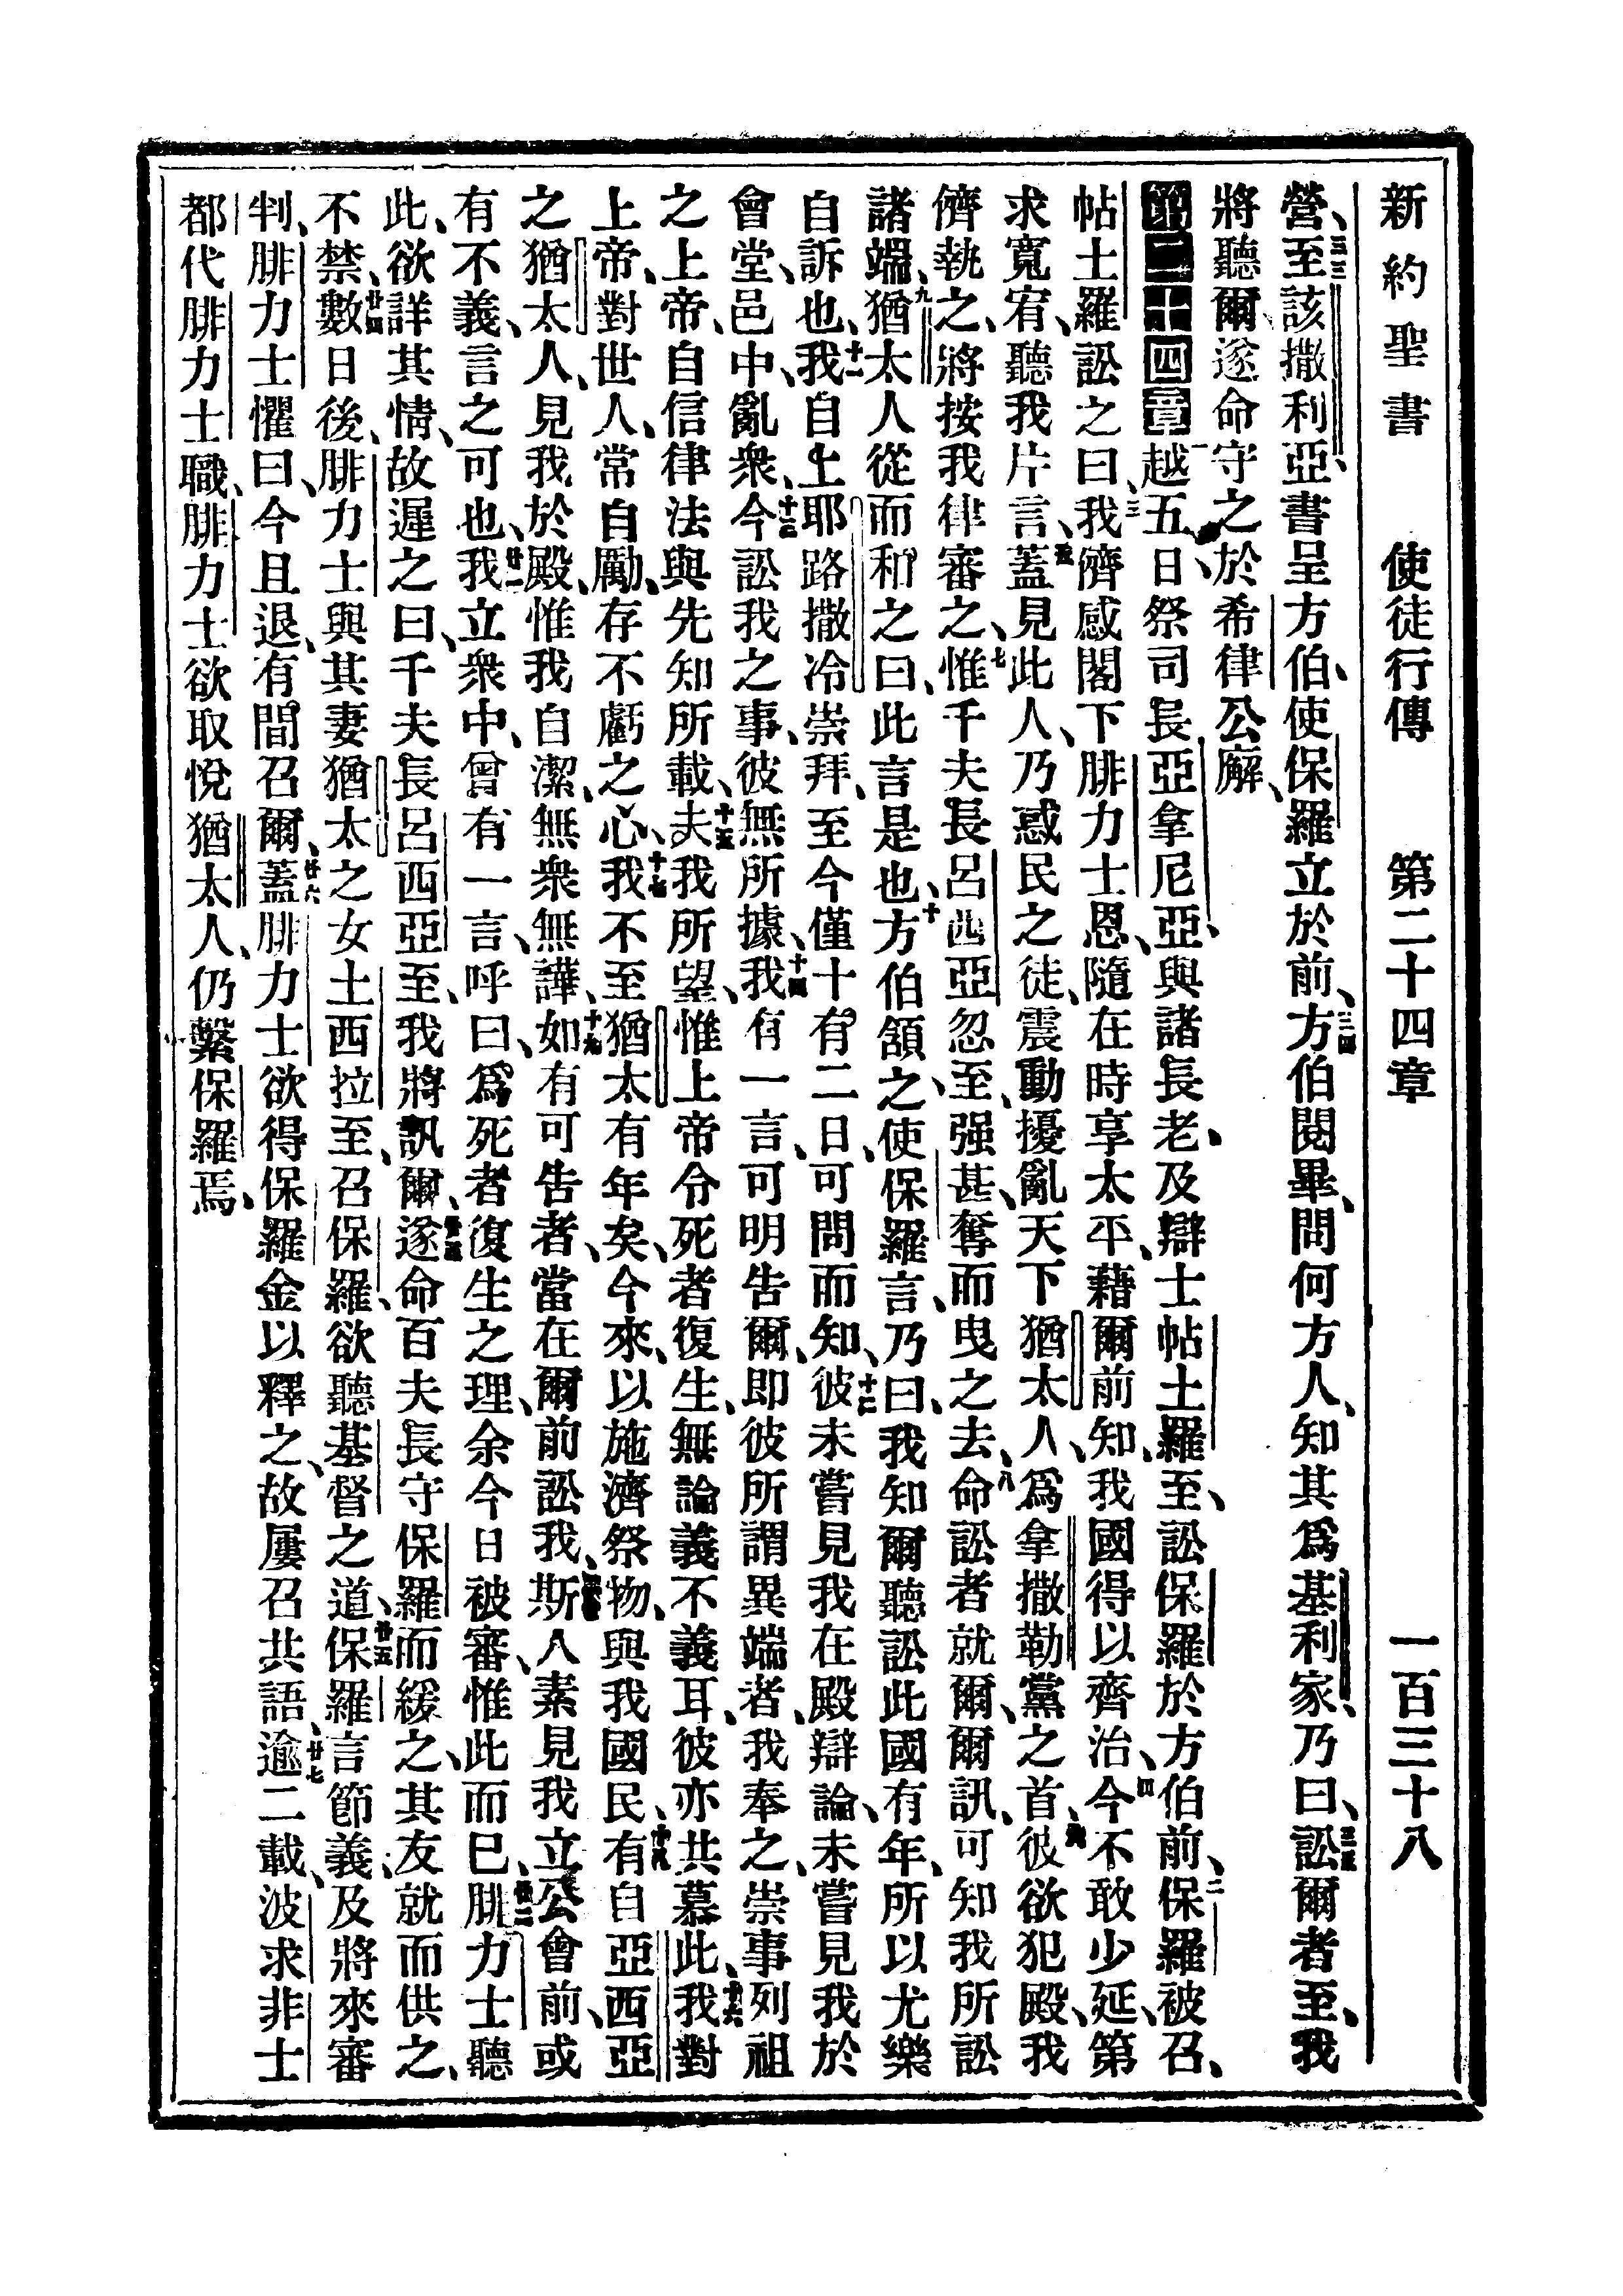 新約聖書 使徒行傳 第二十四章 一百三十八
營、三三至該撒利亞、書呈方伯、使保羅立於前、三四方伯閱畢、問何方人、知其爲基利家、乃曰、三五訟爾者至、我
將聽爾、遂命守之於希律公廨、
第二十四章一越五日、祭司長亞拿尼亞、與諸長老、及辯士帖土羅至、訟保羅於方伯前、二保羅被召、
帖土羅訟之曰、三我儕感閣下腓力士恩、隨在時享太平、藉爾前知、我國得以齊治、四今不敢少延、第
求寬宥、聽我片言、五蓋見此人、乃惑民之徒、震動擾亂天下猶太人、爲拿撒勒黨之首、六彼欲犯殿、我
儕執之、將按我律審之、七惟千夫長呂西亞忽至、强甚、奪而曳之去、八命訟者就爾、爾訊、可知我所訟
諸端、九猶太人從而和之曰、此言是也、十方伯頷之、使保羅言、乃曰、我知爾聽訟此國有年、所以尤樂
自訴也、十一我自上耶路撒冷崇拜、至今僅十有二日、可問而知、十二彼未嘗見我在殿辯論、未嘗見我於
會堂、邑中、亂衆、十三今訟我之事、彼無所據、十四我有一言、可明告爾、即彼所謂異端者、我奉之、崇事列祖
之上帝、自信律法與先知所載、十五夫我所望、惟上帝令死者復生、無論義不義耳、彼亦共慕此、十六我對
上帝、對世人、常自勵、存不虧之心、十七我不至猶太有年矣、今來、以施濟祭物、與我國民、十八有自亞西亞
之猶太人、見我於殿、惟我自潔、無衆無譁、十九如有可告者、當在爾前訟我、二十斯人素見我立公會前、或
有不義、言之可也、廿一我立衆中、曾有一言、呼曰、爲死者復生之理、余今日被審、惟此而已、廿二腓力士聽
此、欲詳其情、故遲之曰、千夫長呂西亞至、我將訊爾、廿三遂命百夫長守保羅而緩之、其友就而供之、
不禁、廿四數日後、腓力士與其妻猶太之女土西拉至、召保羅、欲聽基督之道、廿五保羅言節義、及將來審
判、腓力士懼曰、今且退、有間召爾、廿六蓋腓力士欲得保羅金以釋之、故屢召共語、廿七逾二載、波求非士
都代腓力士職、腓力士欲取悅猶太人、仍繫保羅焉、